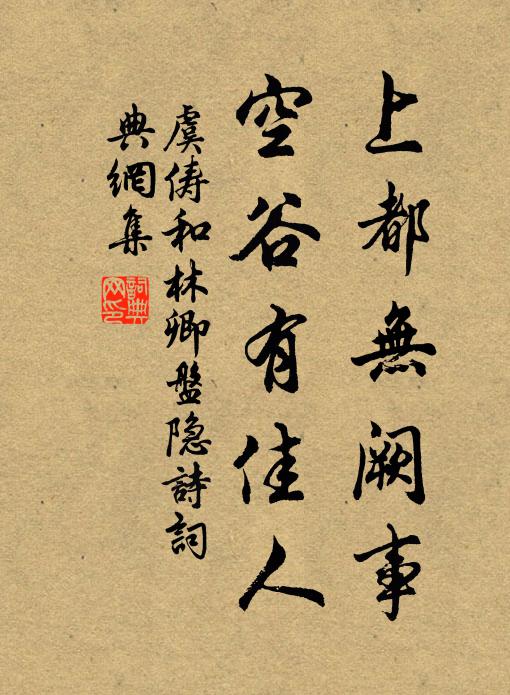 上都無闕事
空谷有佳人
虞俦和林卿盤隐詩詞
典網集
詞典网印